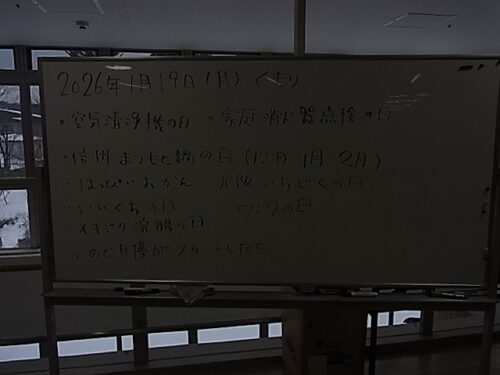 2026年1月19日(月) くもり
・空気清浄機の日 ・家庭消火器点検の日
・信州・まつもと鍋の日(12月・1月・2月)
・はっぴいおかん 大阪いちじくの日
・いいくちの日 ワンクの日
イチジク浣腸の日
・のど自慢がスタートした日